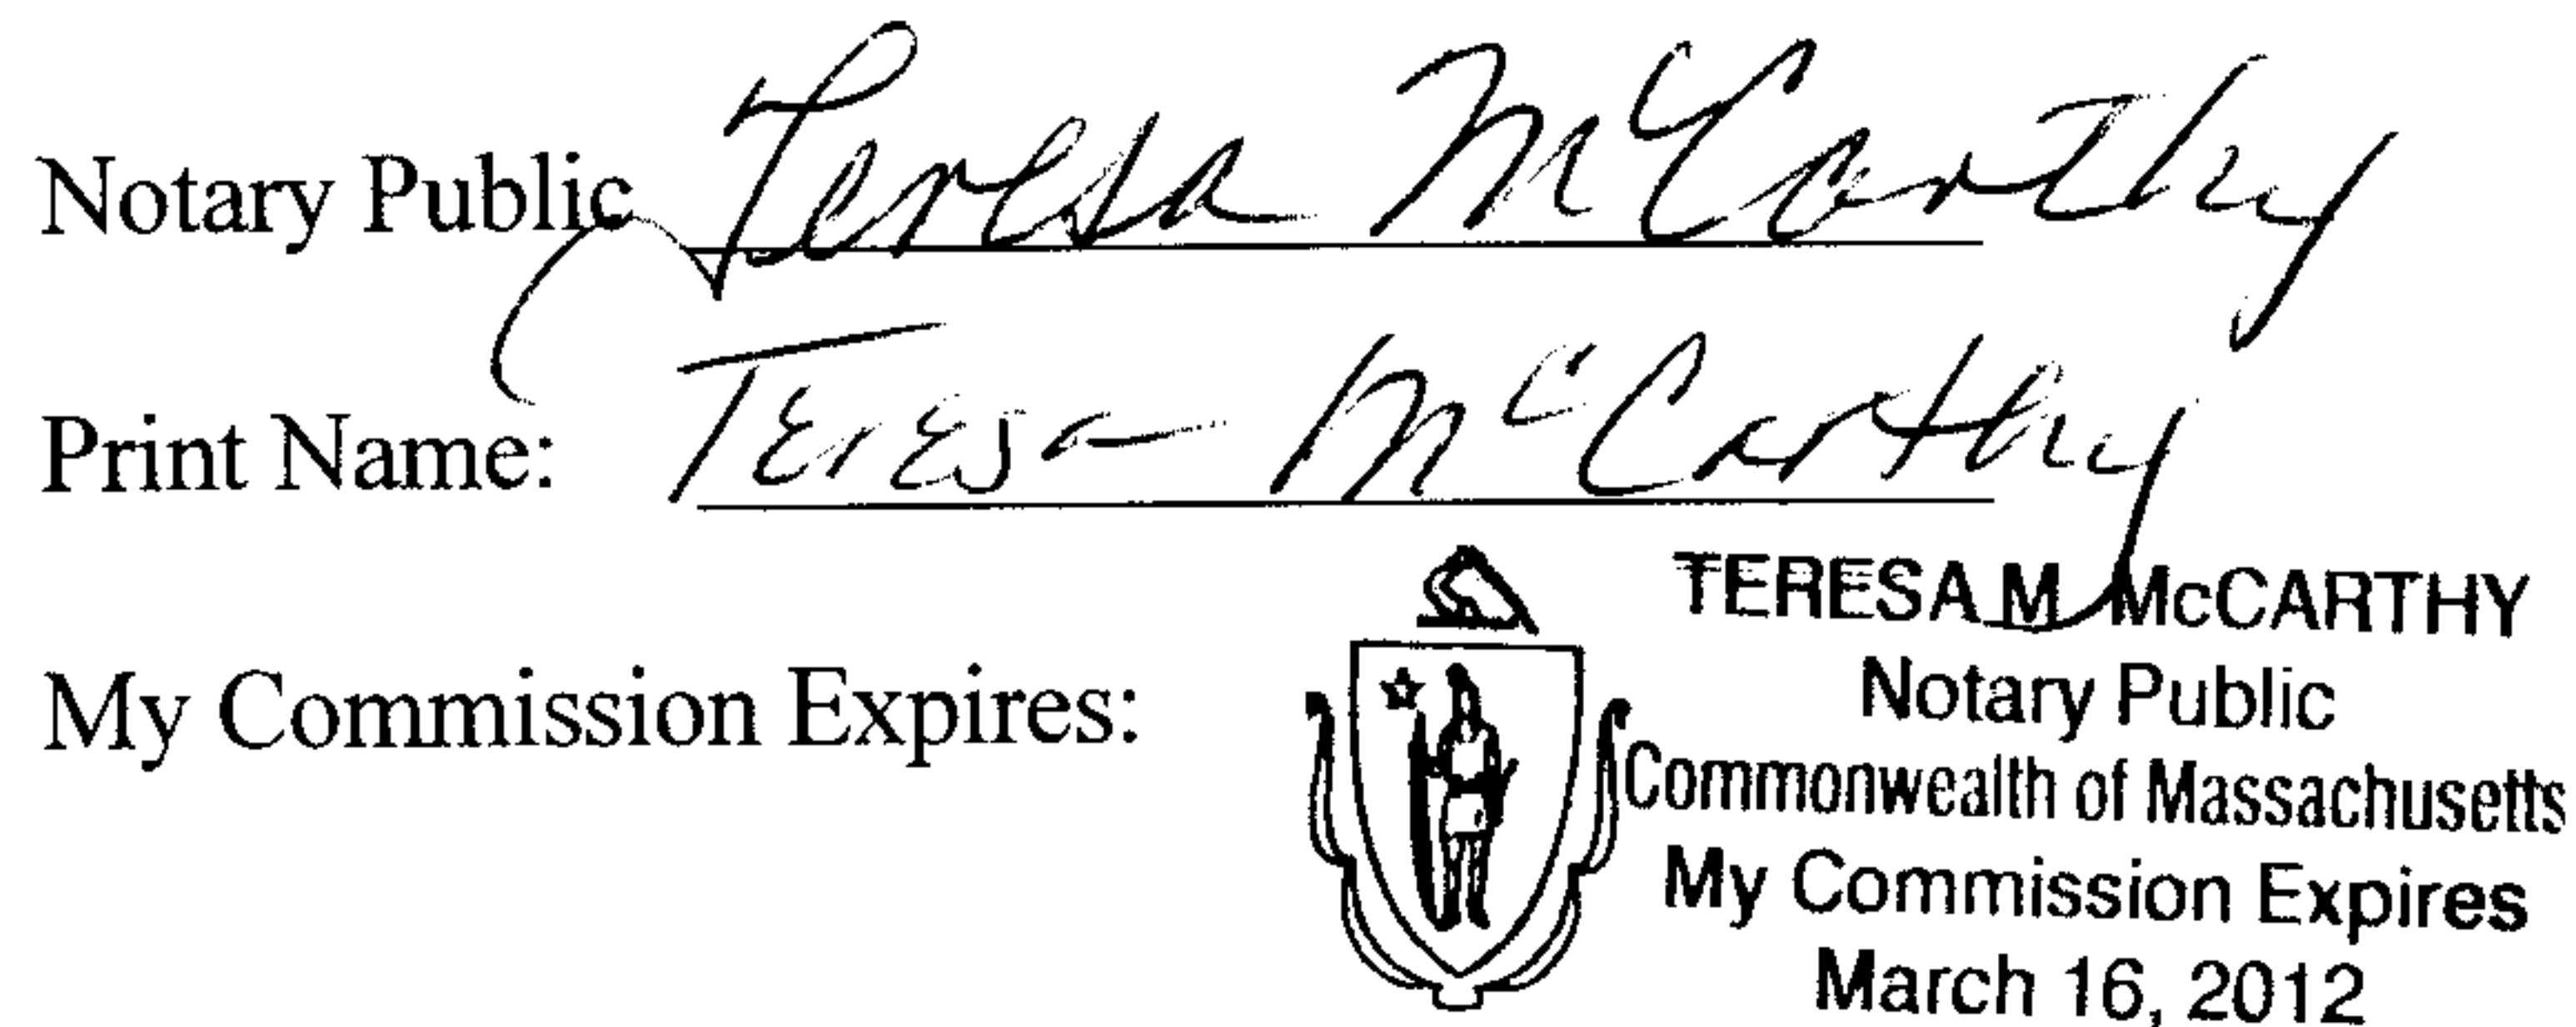 Notary Public Teresa McCarthy
Print Name: Teresa McCarthy
My Commission Expires:
TERESA M McCARTHY
Notary Public
Commonwealth of Massachusetts
My Commission Expires
March 16, 2012